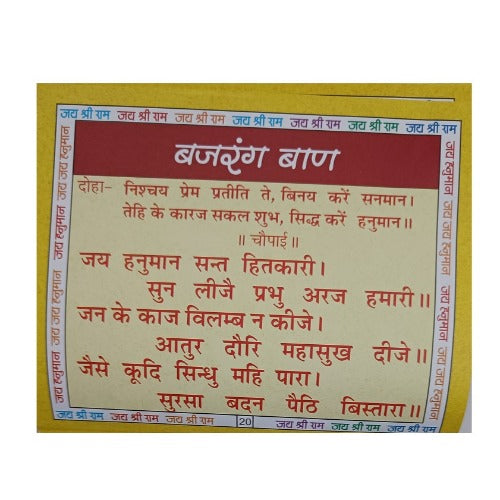 जय श्री राम जय श्री राम जय श्री राम जय श्री राम जय श्री राम जय श्री राम जय श्री राम
बजरंग बाण
दोहा- निश्चय प्रेम प्रतीति ते, बिनय करें सनमान।
तेहि के कारज सकल शुभ, सिद्ध करें हनुमान॥
॥ चौपाई॥
जय हनुमान सन्त हितकारी।
सुन लीजै प्रभु अरज हमारी॥
जन के काज विलम्ब न कीजे।
आतुर दौरि महासुख दीजे॥
जैसे कूदि सिन्धु महि पारा।
सुरसा बदन पैठि बिस्तारा॥
जय श्री राम जय श्री राम जय श्री राम 20 जय श्री राम जय श्री राम जय श्री राम
जय हनुमान जय जय हनुमान जय जय हनुमान
जय जय हनुमान जय जय हनुमान जय जय हनुमान